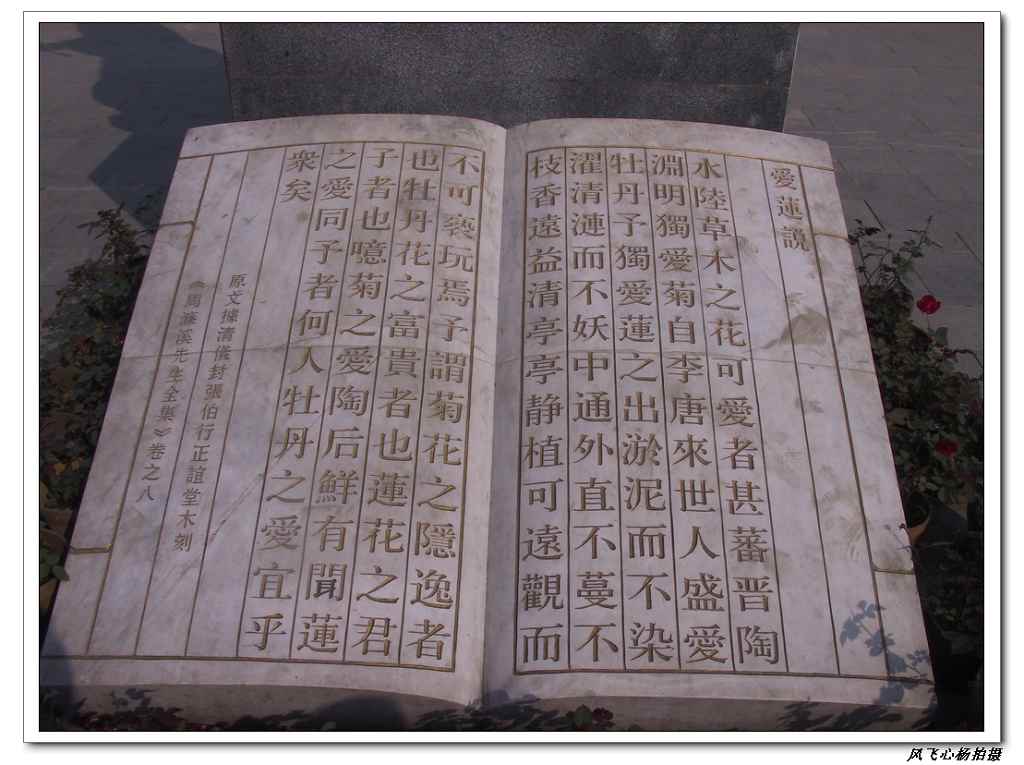 愛蓮説
水陸草木之花可愛者甚蕃晋陶
淵明獨愛菊自李唐來世人盛愛
牡丹予獨愛蓮之出淤泥而不染
濯清漣而不妖中通外直不蔓不
枝香遠益清亭亭静植可遠觀而
不可褻玩焉予謂菊花之隱逸者
也牡丹花之富貴者也蓮花之君
子者也噫菊之愛陶后鮮有聞蓮
之愛同予者何人牡丹之愛宜乎
衆矣
原文據清儀封張伯行正誼堂木刻
《周濂溪先生全集》卷之八
风飞心杨拍摄